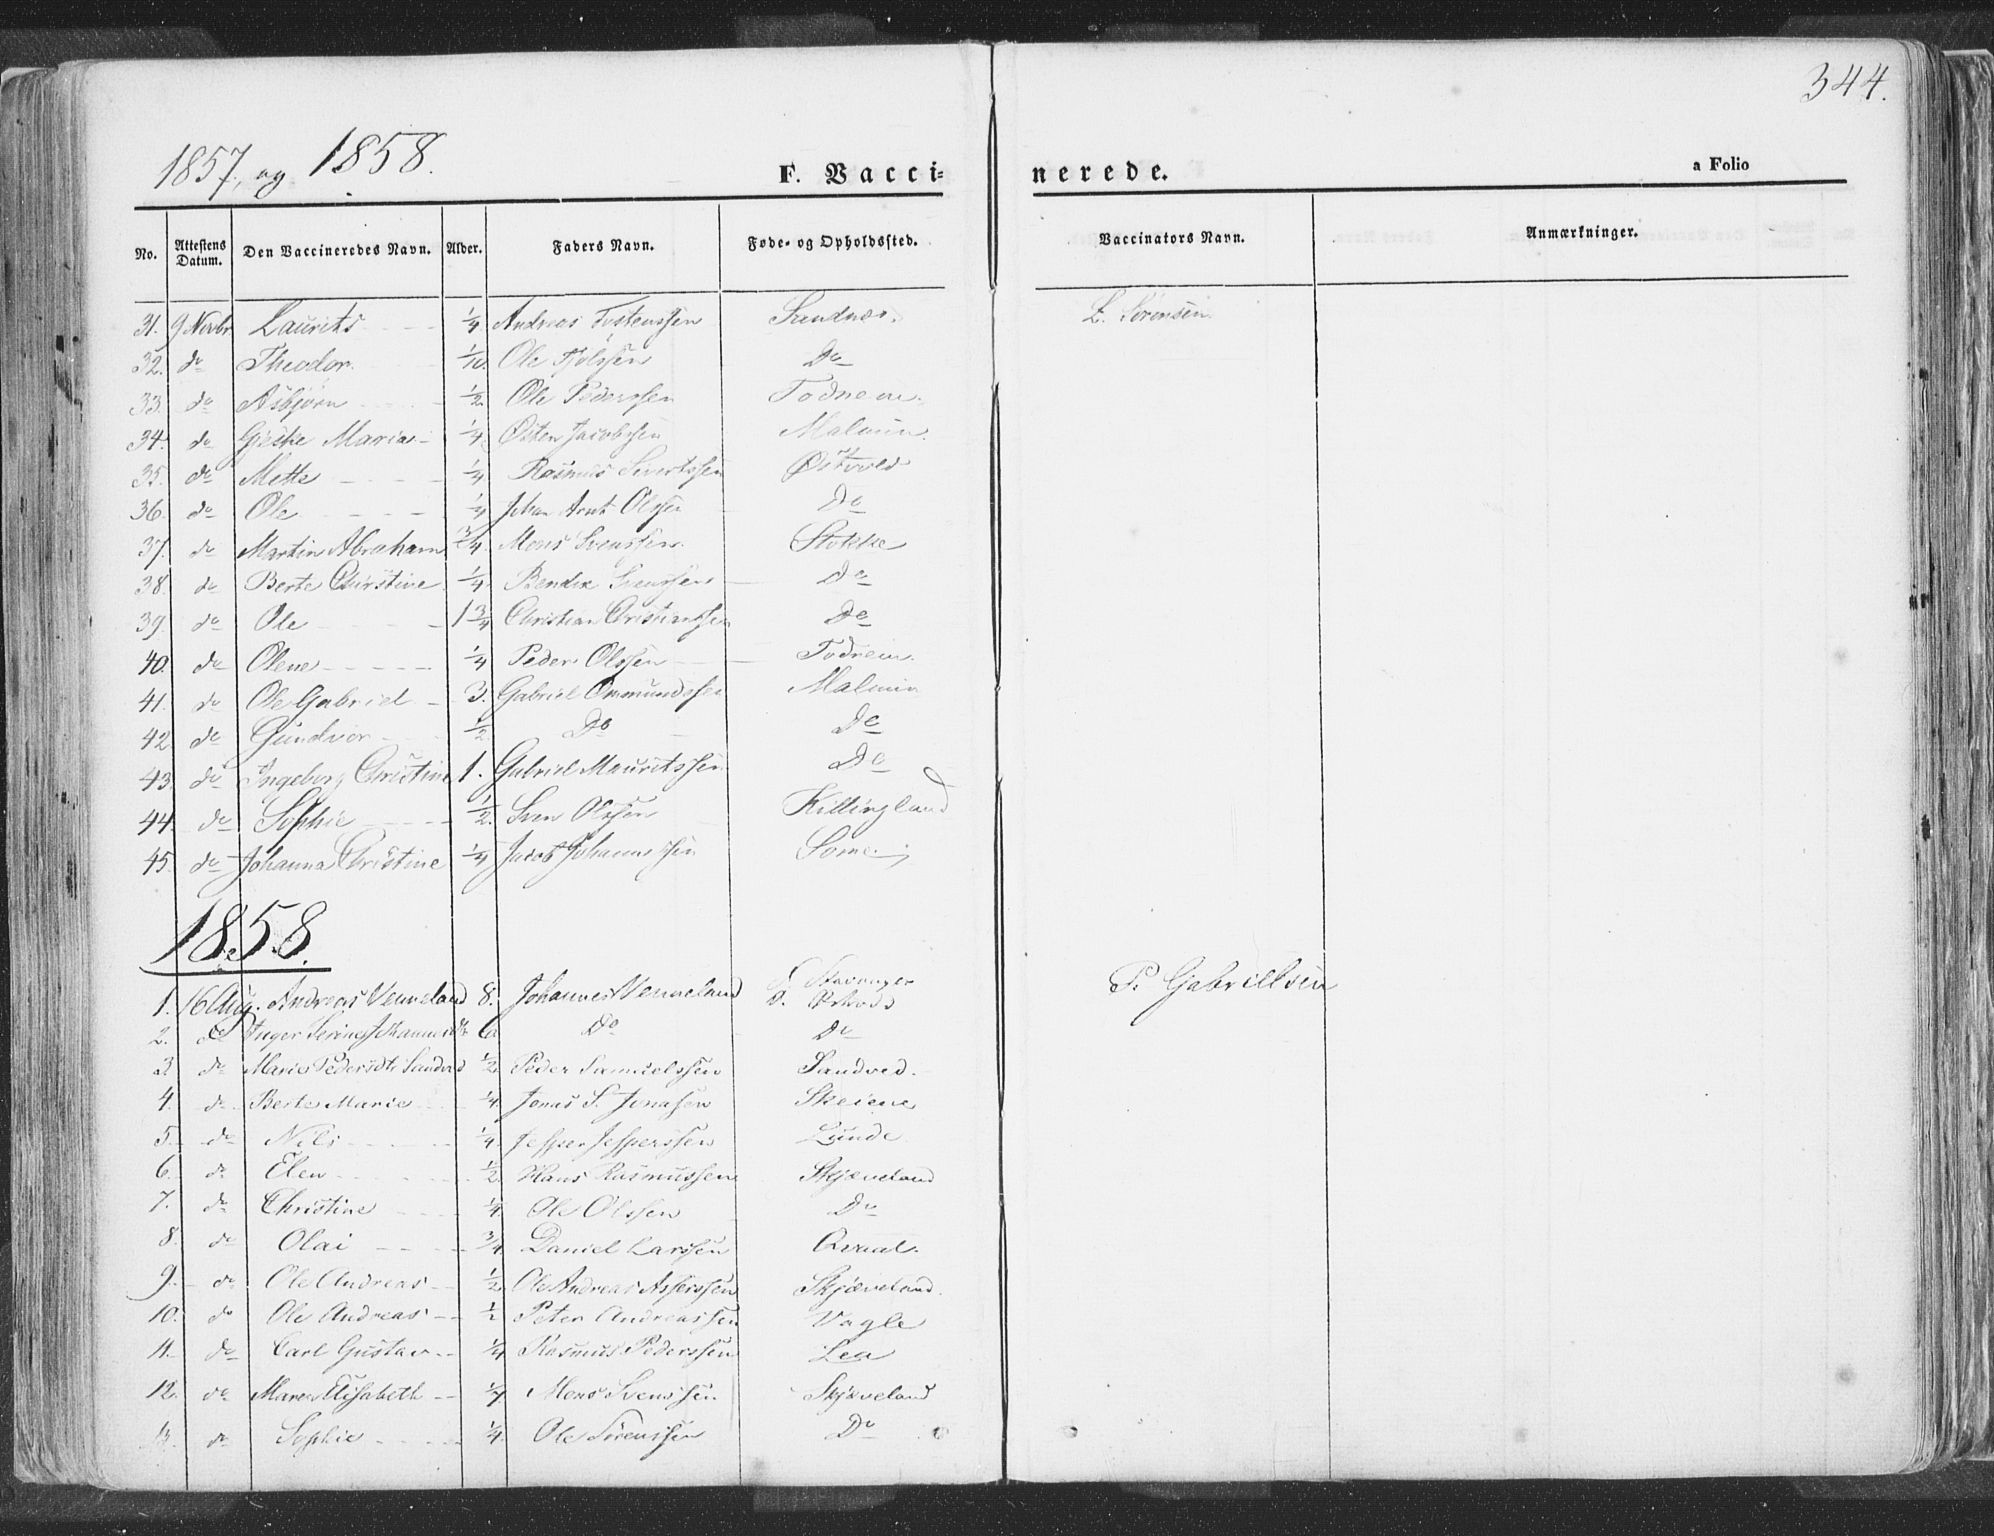 344.
1857, og 1858.
F. Vaccinerede.
a Folio
No. Attestens Datum. Den Vaccineredes Navn. Alder. Faders Navn. Føde- og Opholdssted. Vaccinators Navn. Anmærkninger.
31. 9 Novbr Laurits 1/4 Andreas Tostenssen Sandnæs. Sørensen
32. do Theodor 1/10 Ole Do
33. do Asbjørn 1/2 Ole Pederssen Todnem
34. do Gieske Maria 1/4 Østen Jacobssen Malmin
35. do Mette 1/4 Rasmus Sivertssen Østvold
36. do Ole 1/4 Johan Arnt Olssen Do
37. do Martin Abraham 3/4 Mons Svenssen Stokke
38. do Berte Christine 1/4 Bendix Svenssen Do
39. do Ole 1 3/4 Christian Christianssen Do
40. do Olene 1/4 Peder Olssen Todnem
41. do Ole Gabriel 3. Gabriel Ommundssen Malmin
42. do Gundvor 1/2 Do Do
43. do Ingeborg Christine 1. Gabriel Mauritssen Do
44. do Sophie 1/2 Sven Olssen Killingland
45. do Johanna Christine 1/4 Jacob Johannessen Somme
1858.
1. 16 Aug. Andreas Venneland 8. Johannes Venneland F. Stavanger P. Gabrielsen
O.
2. do Inger Serine 6 Do Do
3 do Marie Pedersdtr Sandved 1/2 Peder Samuelssen Sandved.
4. do Berte Marie 1/4. Jonas S. Jonassen Skeiene
5. do Nils 1/4. Jesper Jesperssen Lunde
6. do Elen 1/2 Hans Rasmussen Skjæveland
7. do Christine 1/4. Ole Olssen Do
8. do Olai 3/4 Daniel Larssen Qvaal.
9. do Ole Andreas 1/2 Ole Andreas Asserssen Skjæveland.
10. do Ole Andreas 1/2 Peter Andreassen Vagle
11. do Carl Gustav 1/4 Rasmus Pederssen Lea
12. do Maren Elisabeth 1/4 Mons Svenssen Skjæveland
13. do Sophie 1/4. Ole Sørenssen Do